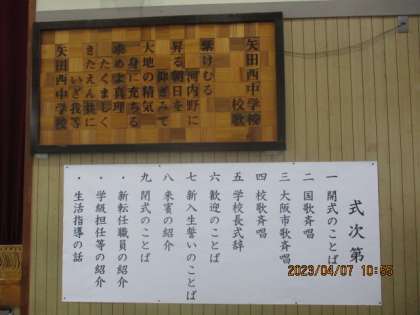 矢田西中学校
校歌
繋けむる
河内野に
昇る朝日を
仰ぎみて
大地の精気
一身に充ちる
求めよ真理
たくましく
きたえん共に
いざ我等
矢田西中学校
式次第
一 開式のことば
二 国歌斉唱
三 大阪市歌斉唱
四 校歌斉唱
五 学校長式辞
六 歓迎のことば
七 新入生誓いのことば
八 来賓の紹介
九 閉式のことば
・新転任職員の紹介
・学級担任等の紹介
・生活指導の話
2023/04/07 10:55